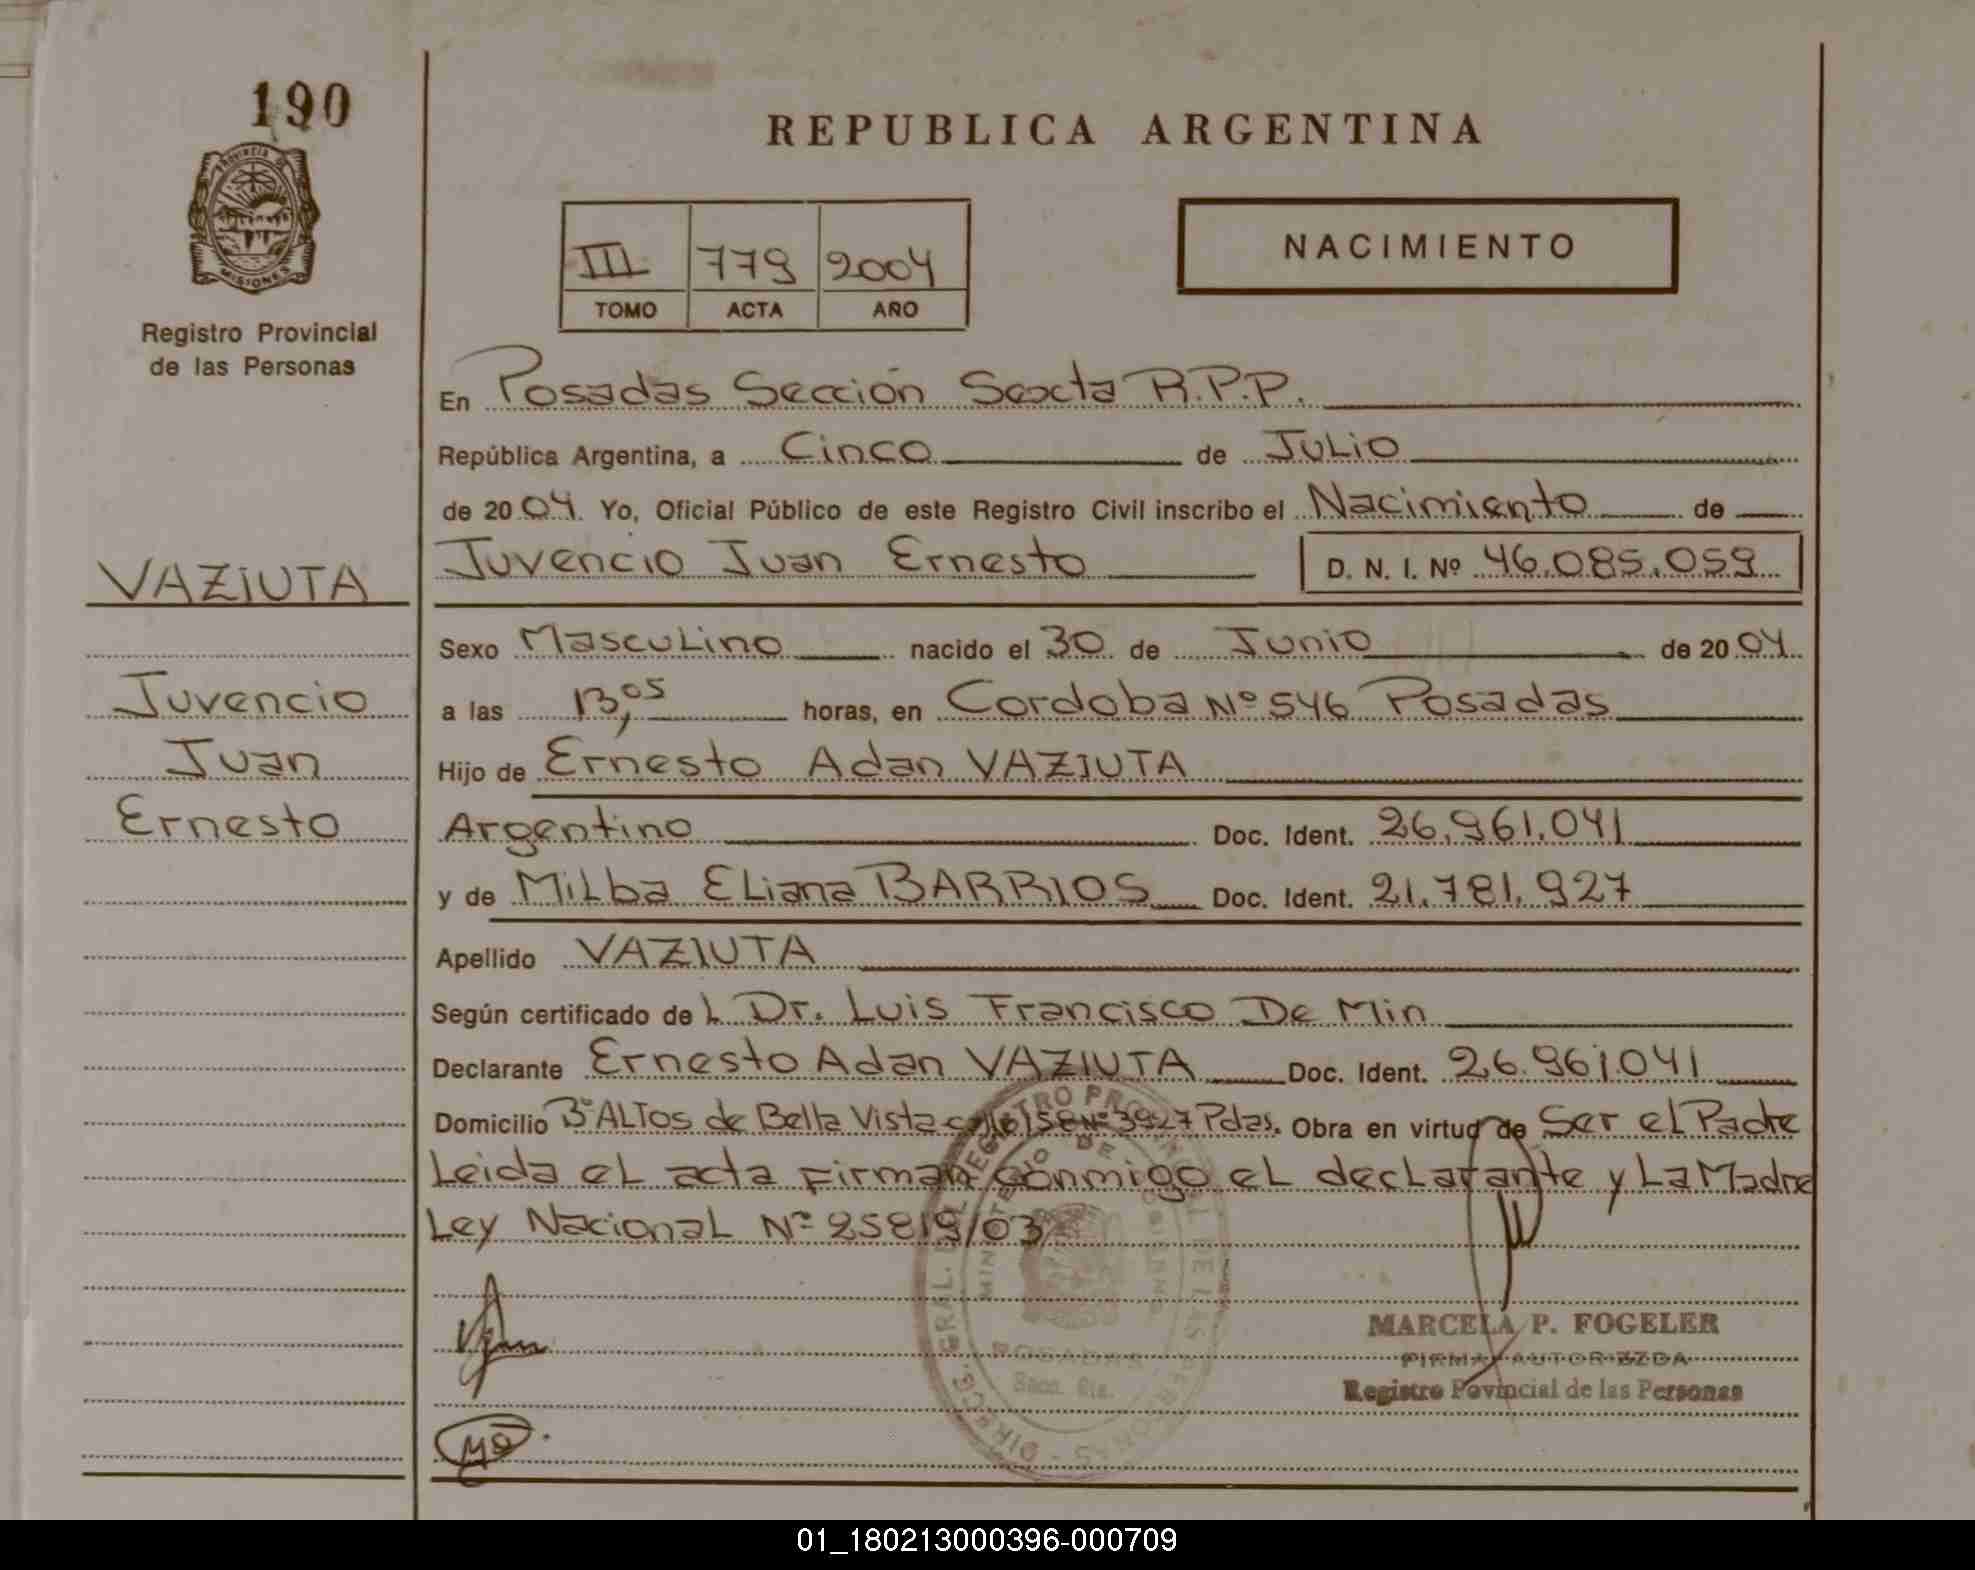 190
PROVINCIA DE
MISIONES
Registro Provincial
de las Personas
VAZIUTA
Juvencio
Juan
Ernesto
REPUBLICA ARGENTINA
III 779 2004
TOMO ACTA AÑO
NACIMIENTO
En Posadas Sección Sexta R.P.P.
República Argentina, a Cinco de Julio
de 2004. Yo, Oficial Público de este Registro Civil inscribo el Nacimiento de
Juvencio Juan Ernesto D. N. I. Nº 46.085.059
Sexo Masculino nacido el 30 de Junio de 2004
a las 13,05 horas, en Cordoba Nº 546 Posadas
Hijo de Ernesto Adan VAZIUTA
Argentino Doc. Ident. 26.961.041
y de Milba Eliana BARRIOS Doc. Ident. 21.781.927
Apellido VAZIUTA
Según certificado de L Dr. Luis Francisco De Min
Declarante Ernesto Adan VAZIUTA Doc. Ident. 26.961.041
Domicilio Bº ALTOS de Bella Vista 158 Nº 3927 Pdas. Obra en virtud de Ser el Padre
Leida el acta Firman conmigo el declarante y La Madre
Ley Nacional Nº 25819/03
DIRECC. GRAL. DEL REGISTRO PROVINCIAL DE LAS PERSONAS
MINISTERIO DE GOBIERNO
POSADAS
Secc. 6ta.
MARCELA P. FOGELER
FIRMA AUTORIZZDA
Registro Povincial de las Personas
01_180213000396-000709